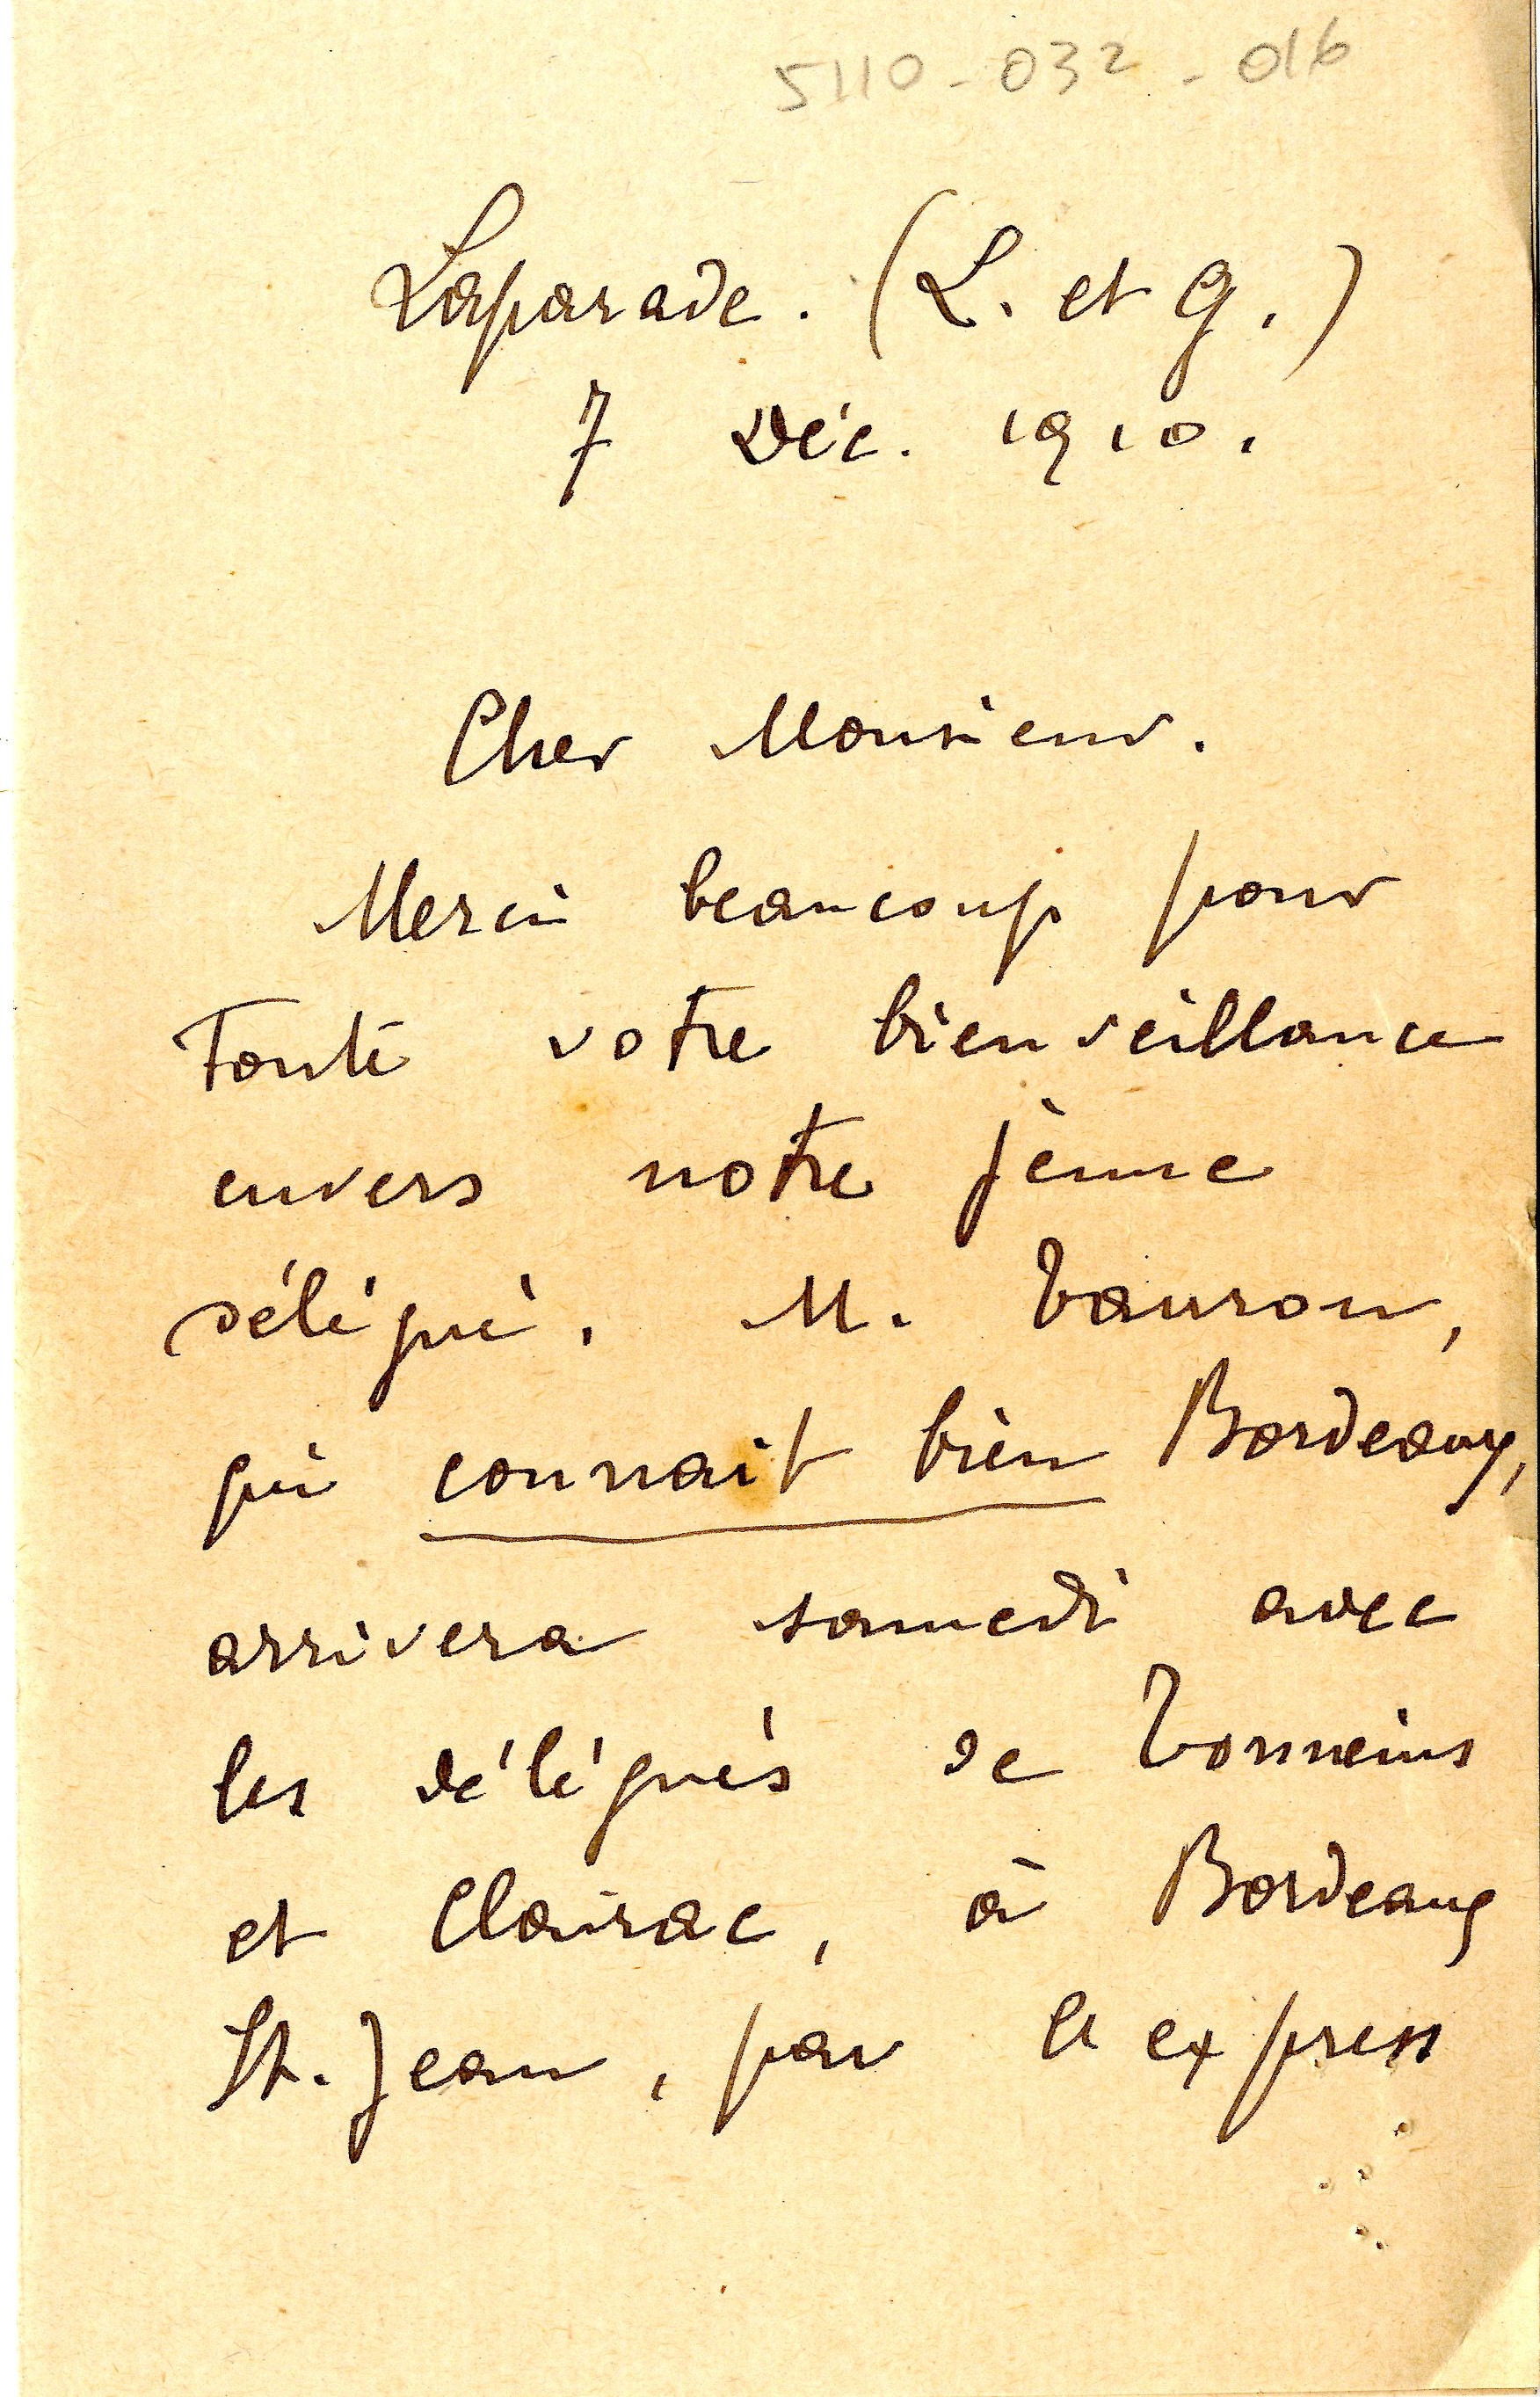 5110-032-016
Laparade. (L. et G.)
7 Déc. 1910.
Cher Monsieur.
Merci beaucoup pour
toute votre bienveillance
envers notre jeune
délégué. M. Tauron,
qui connait bien Bordeaux,
arrivera samedi avec
les délégués de Tonneins
et Clairac, à Bordeaux
St. Jean, par le express